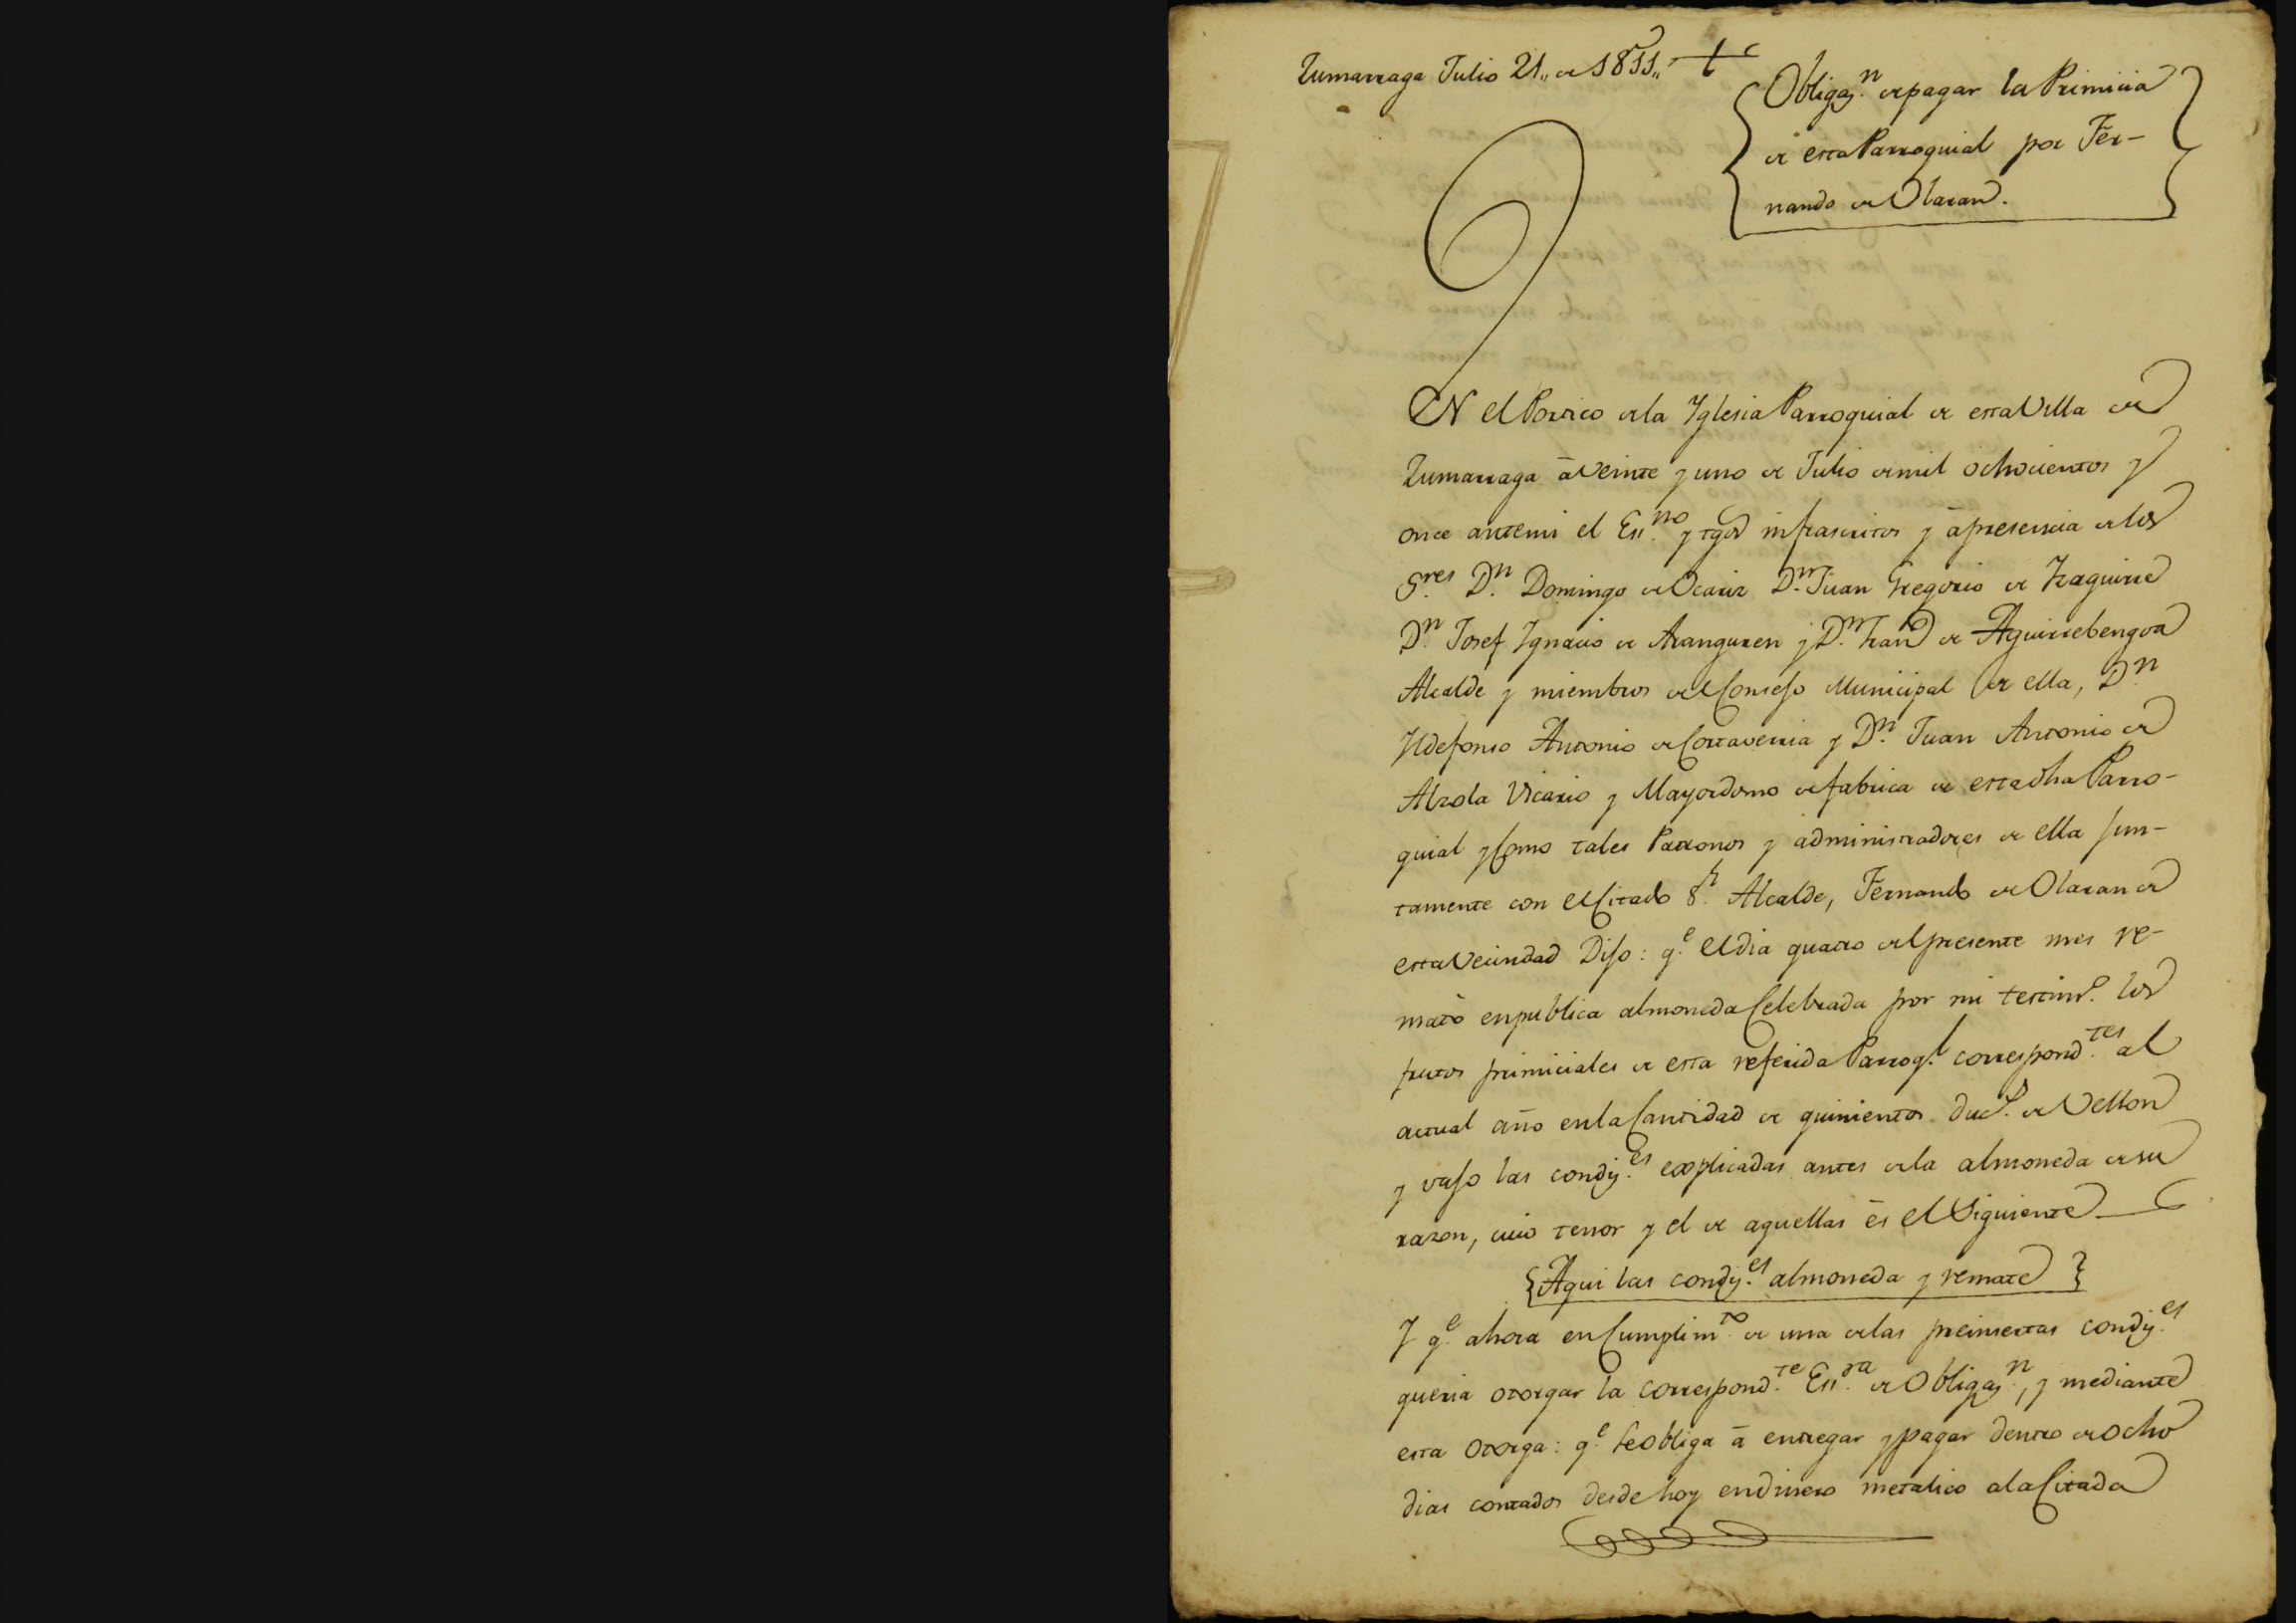 Zumarraga Julio 21,, de 1811,,
Obligaz.n de pagar la Primicia
de esta Parroquial por Fer-
nando de Olaran.
EN el Portico de la Yglesia Parroquial de esta Villa de
Zumarraga à veinte y uno de Julio de mil ochocientos y
once ante mi el Ess.no y tgos infrascritos y à presencia de los
S.res D.n Domingo de Ocariz D.n Juan Gregorio de Yzaguirre
D.n Josef Ygnacio de Aranguren y D.n Fran.co de Aguirrebengoa
Alcalde y miembros del Consejo Municipal de ella, D.n
Yldefonso Antonio de Cortaverria y D.n Juan Antonio de
Alzola Vicario y Mayordomo de fabrica de esta dha Parro-
quial y como tales Patronos y administradores de ella jun-
tamente con el citado S.r Alcalde, Fernando de Olaran de
esta Vecindad Dijo: q.e el dia quatro del presente mes re-
matò en publica almoneda celebrada por mi testim.o los
frutos primiciales de esta referida Parroq.l correspond.tes al
actual año en la cantidad de quinientos duc.s de vellon
y vajo las condiz.es explicadas antes de la almoneda de su
razon, cuio tenor y el de aquellas ès el siguiente
{Aqui las condiz.es almoneda y remate}
Y q.e ahora en cumplim.to de una de las preinsertas condiz.es
queria otorgar la correspond.te Ess.ra de Obligaz.n, y mediante
esta otorga: q.e se obliga à entregar y pagar dentro de ocho
dias contados desde hoy en dinero metalico a la citada